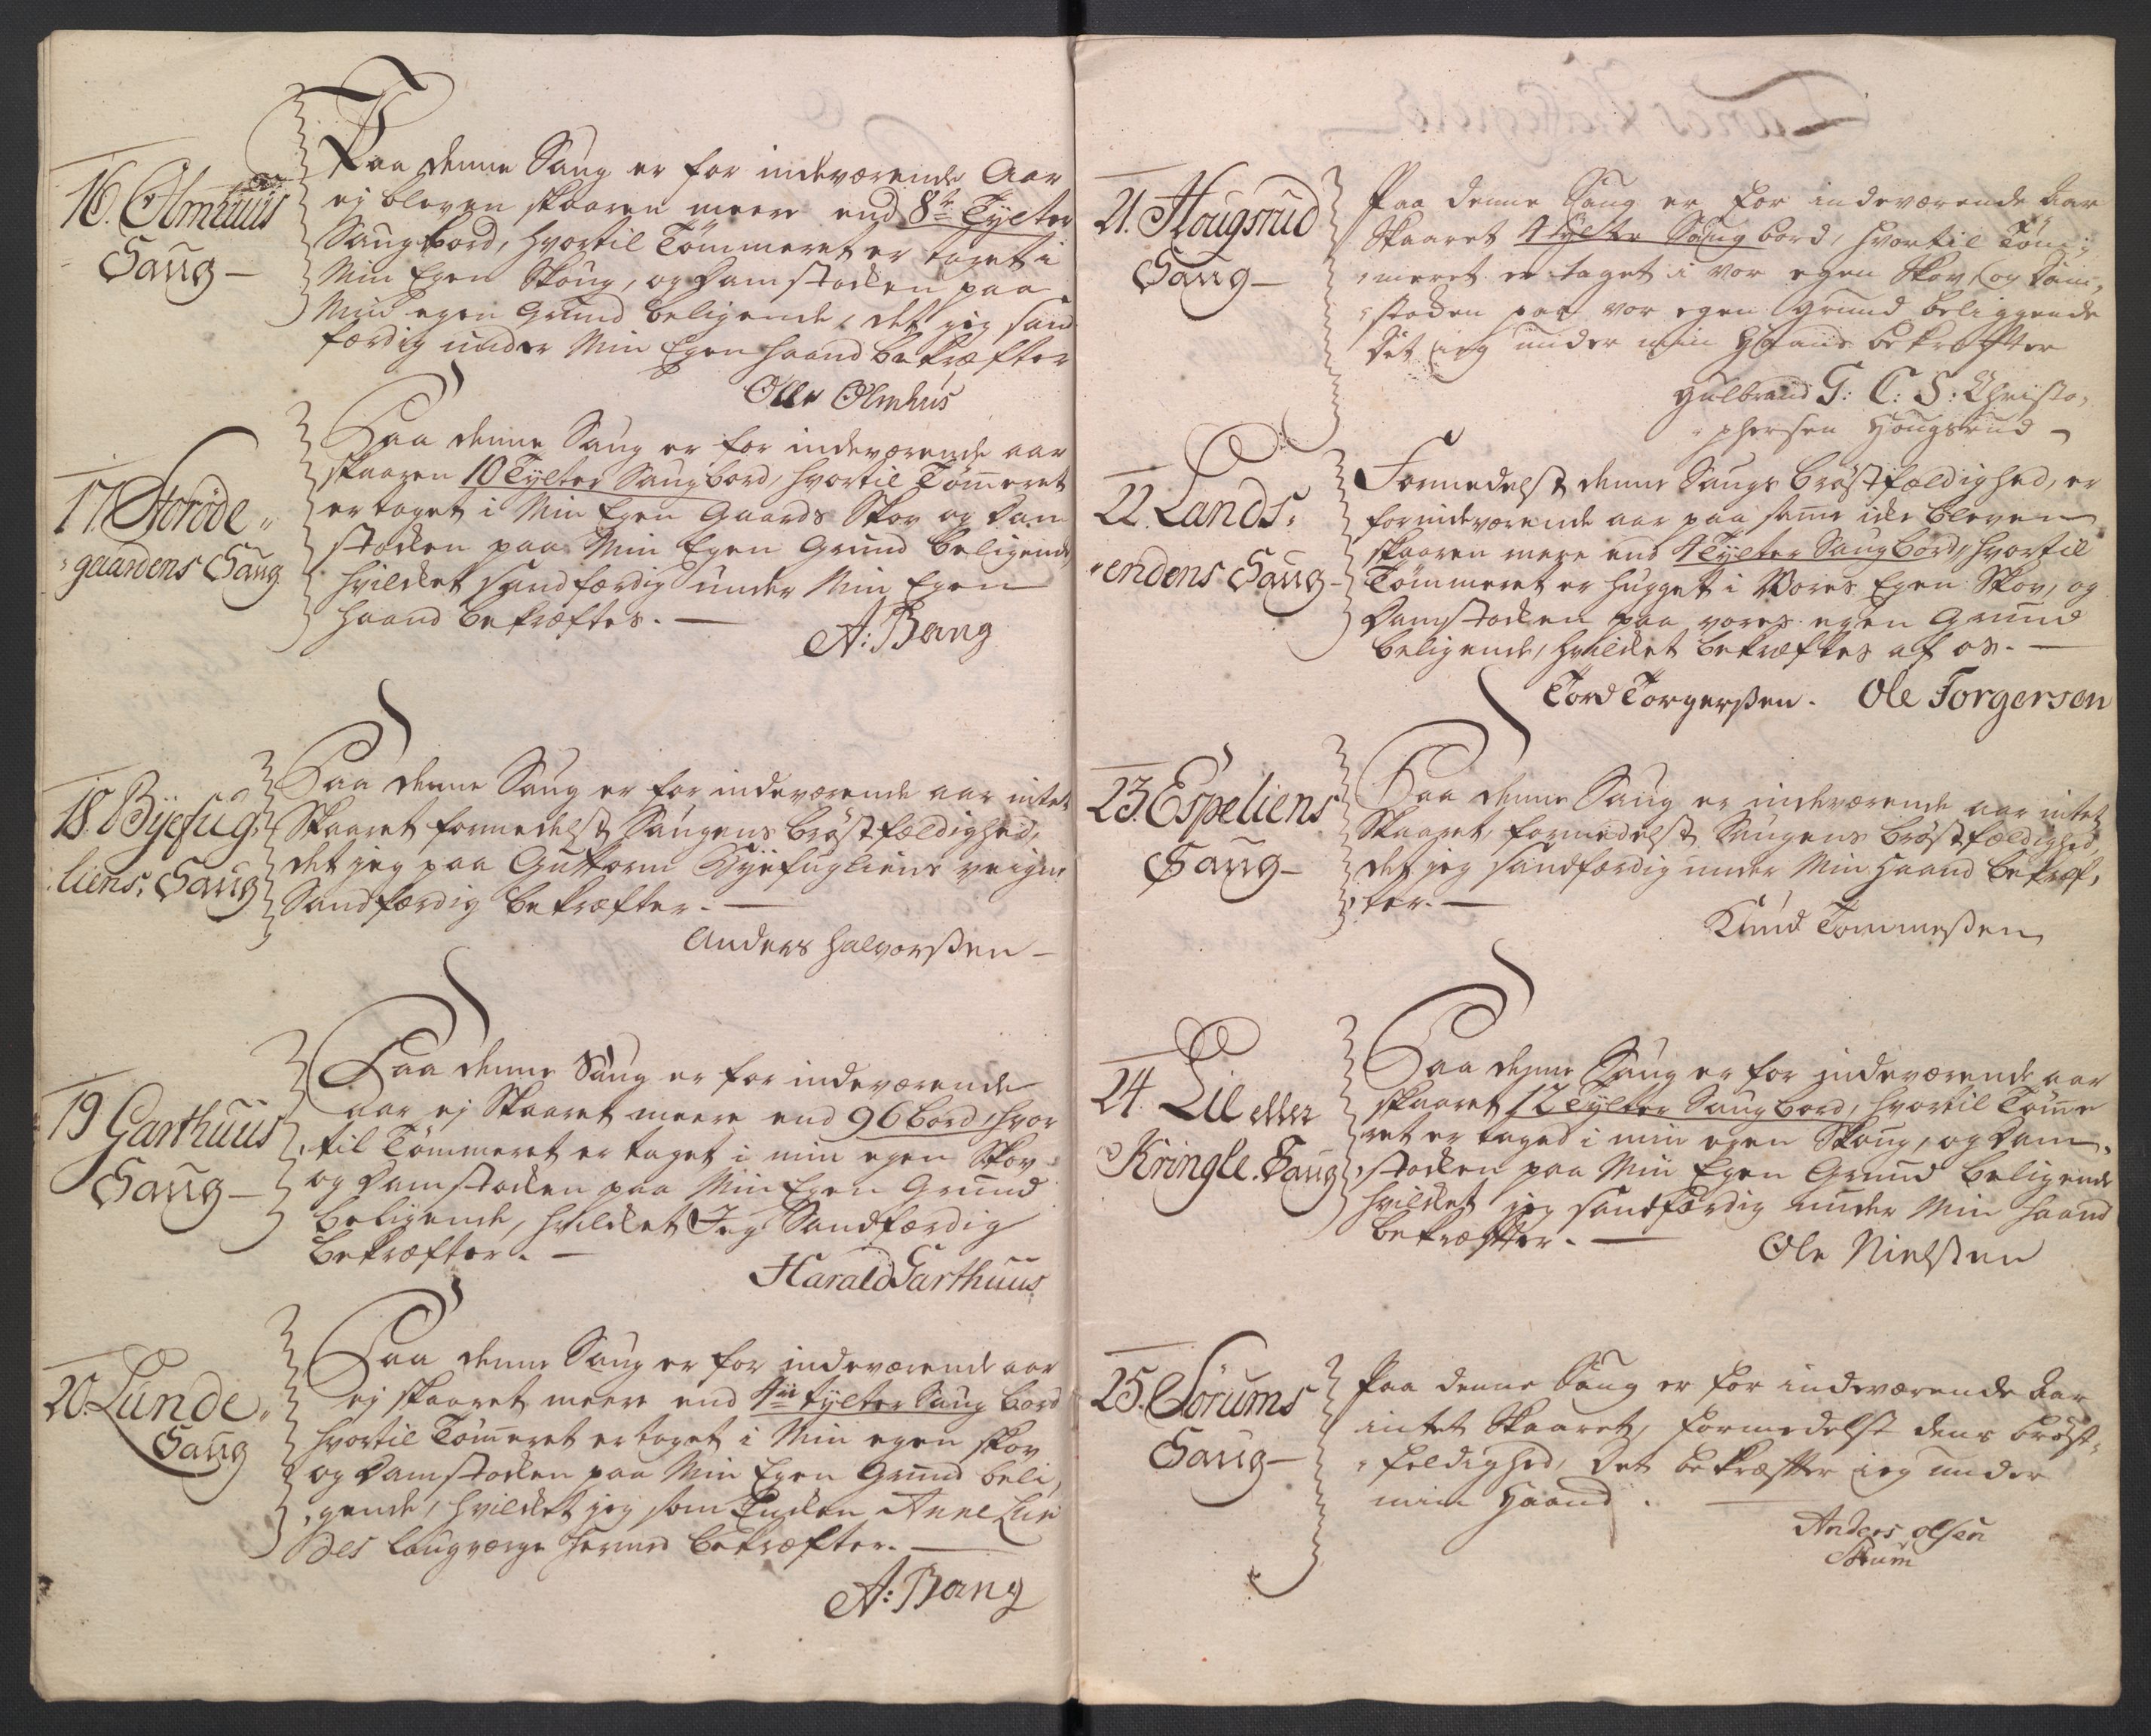 16. Olmhuus
Saug —
Paa denne Saug er for indeværende Aar
ej bleven skaaren meere end 8te Tylter
Saugbord, hvortil Tömmeret er taget i
Min Egen Skoug, og Damstocken paa
Min egen Grund beligende, det jeg sand
færdig under Min Egen haand bekræfter
Olle Olmhus
17. Storöde„
„gaardens Saug
Paa denne Saug er for indeværende aar
skaaren 10 Tylter Saugbord, hvortil Tömeret
er taget i Min Egen Gaards Skov og Dam
stocken paa Min Egen Grund beligende
hvilcket sandfærdig under Min Egen
haand bekræftes. —
A: Bang
18. Byefug„
liens, Saug
Paa denne Saug er for indeværende aar intet
Skaaret formedelst Saugens bröstfældighed,
det jeg paa Guttorm Byefugliens veigne
Sandfærdig bekræfter. —
Anders Halvorßen —
19 Garthuus
Saug —
Paa denne Saug er for indeværende
aar ej Skaaret meere end 96 bord, hvor
„til Tömmeret er taget i min egen Skov
og Damstocken paa Min Egen Grund
beligende, hvilcket Jeg Sandfærdig
bekræfter. —
Harald Garthuus
20. Lunde„
Saug
Paa denne Saug er for indeværende aar
ej skaaret meere end 4re tylter Saug bord
hvortil Tömeret er taget i Min egen skov
og Damstocken paa Min Egen Grund beli„
„gende, hvilcket jeg som Encken Anne Lun
des laugværge herved bekræfter. —
A: Bang
21. Hougsrud
Saug —
Paa denne Saug er for indeværende Aar
Skaaret 4 tylter Saug bord, hvortil Töm„
„meret er taget i vor egen Skov, og Dam„
„stocken paa vor egen Grund beliggende
Det ieg under min Haand bekræfter
Gulbrand G: C: S: Christo„
„phersen Hougsrud —
22. Lands„
„endens Saug —
Formedelst denne Saugs bröstfældighed, er
for indeværende aar paa same icke bleven
skaaren mere end 4 Tylter Saugbord, hvortil
Tömmeret er hugget i Vores Egen Skov, og
Damstocken paa vores egen Grund
beligende, hvilcket bekræftes af os. —
Tord Torgerßen. Ole Torgersen
23. Espeliens
Saug —
Paa denne Saug er indeværende aar intet
Skaaret, formedelst Saugens bröstfældighed,
det jeg sandfærdig under Min haand bekræf„
„ter. —
Knud Tommeßen
24. Lil eller
Kringle. Saug
Paa denne Saug er for indeværende aar
skaaret 12 Tylter Saugbord, hvortil Töme
ret er taged i min egen Skoug, og Dam„
„stocken paa Min Egen Grund beligende
hvilcket jeg sandfærdig under Min haand
bekræfter. —
Ole Nielßen
25. Sörums
Saug —
Paa denne Saug er for indeværende Aar
intet Skaaret, formedelst dens bröst„
„feldighed, det bekræfter ieg under
min Haand. —
Anders olsen
Sörum